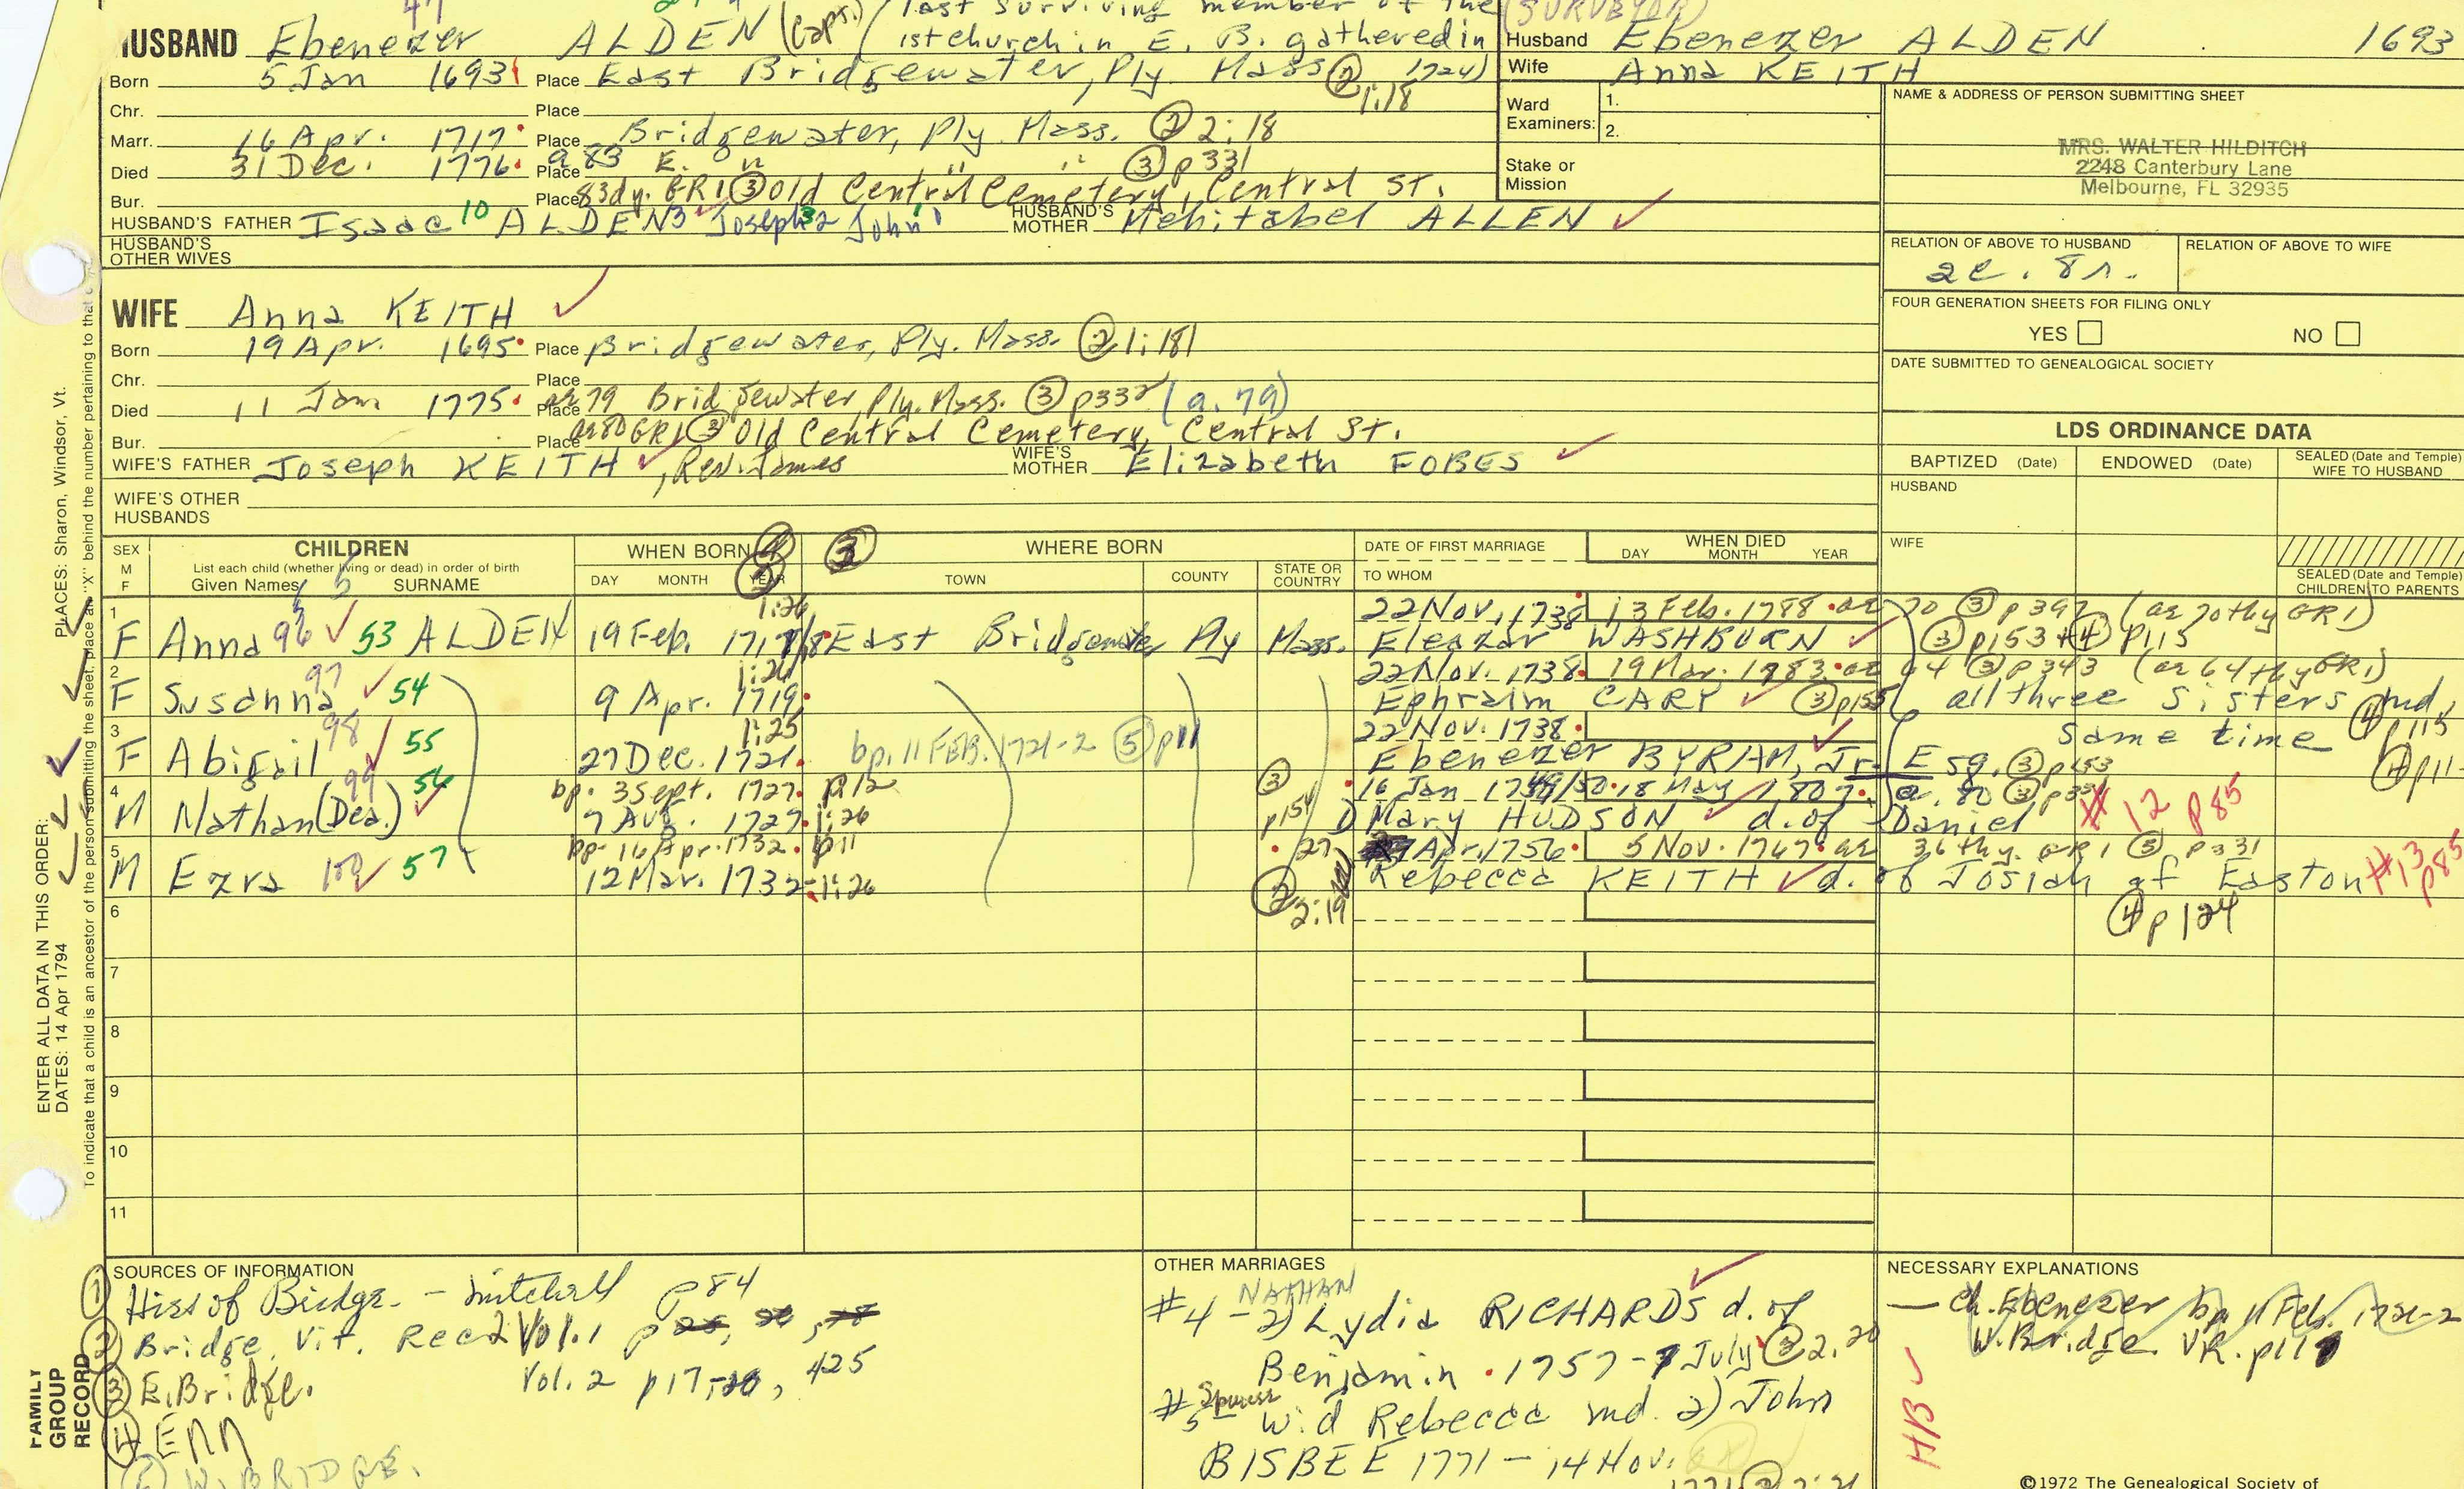 47
HUSBAND Ebenezer ALDEN (Capt.) (last surviving member of the
1st church in E. B. gathered in
1724)
Born 5 Jan 1693 Place East Bridgewater, Ply. Mass ② 1:18
Chr. Place
Marr. 16 Apr. 1717 Place Bridgewater, Ply Mass. ② 2:18
Died 31 Dec. 1776 a 83 Place E. " " " ③ p331
Bur. Place 83dy. GR1 ③ Old Central Cemetery, Central St.
HUSBAND'S FATHER Isaac 10 ALDEN 3 Joseph 2 John 1 HUSBAND'S MOTHER Mehitabel ALLEN ✓
HUSBAND'S OTHER WIVES
(SURVEYOR)
Husband Ebenezer ALDEN 1693
Wife Anna KEITH
Ward Examiners: 1.
2.
Stake or Mission
NAME & ADDRESS OF PERSON SUBMITTING SHEET
MRS. WALTER HILDITCH
2248 Canterbury Lane
Melbourne, FL 32935
RELATION OF ABOVE TO HUSBAND RELATION OF ABOVE TO WIFE
2c. 8r.
FOUR GENERATION SHEETS FOR FILING ONLY
YES NO
DATE SUBMITTED TO GENEALOGICAL SOCIETY
WIFE Anna KEITH ✓
Born 19 Apr. 1695 Place Bridgewater, Ply. Mass. ② 1:181
Chr. Place
Died 11 Jan 1775 Place ae 79 Bridgewater, Ply. Mass. ③ p332 (a. 79)
Bur. Place ae 80 GR1 ③ Old Central Cemetery, Central St.
WIFE'S FATHER Joseph KEITH ✓, Rev. James WIFE'S MOTHER Elizabeth FOBES ✓
WIFE'S OTHER HUSBANDS
LDS ORDINANCE DATA
BAPTIZED (Date) ENDOWED (Date) SEALED (Date and Temple) WIFE TO HUSBAND
HUSBAND
WIFE
SEALED (Date and Temple) CHILDREN TO PARENTS
SEX M F
CHILDREN
List each child (whether living or dead) in order of birth
Given Names SURNAME
WHEN BORN
DAY MONTH YEAR
WHERE BORN
TOWN COUNTY STATE OR COUNTRY
DATE OF FIRST MARRIAGE
TO WHOM
WHEN DIED
DAY MONTH YEAR
1 1:26 22 Nov. 1738 13 Feb. 1788 ae 70 ③ p 397 (ae 70thy GR1)
F Anna 96 ✓ 53 ALDEN 19 Feb. 1717/8 East Bridgewater Ply Mass. Eleazar WASHBURN ✓ ③ p153 + ④ p115
2 97 1:26 22 Nov. 1738 19 Mar. 1783 ae 64 ③ p343 (ae 64thy GR1)
F Susanna ✓ 54 9 Apr. 1719 Ephraim CARY ✓ ③ p155 all three sisters md
same time ④ p115
3 98 1:25 22 Nov. 1738
F Abigail ✓ 55 27 Dec. 1721 bp. 11 FEB. 1721-2 ⑤ p11 Ebenezer BYRAM, Jr E 59. ③ p153 ④ p11
4 99 56 bp. 3 Sept. 1727 p12 ③ p154 16 Jan 1749/50 18 May 1807 a. 80 ③
M Nathan (Dea.) ✓ 7 Aug. 1727 1:26 Mary HUDSON ✓ d. of Daniel #12 p85
5 bp. 16 Apr. 1732 p11 27 Apr 1756 5 Nov. 1767 ae 36thy. GR1 ③ p331
M Ezra 100 ✓ 57 12 Mar. 1732 1:26 ② 2:19 Rebecca KEITH ✓ d. of Josiah of Easton #13 p85
④ p124
6
7
8
9
10
11
SOURCES OF INFORMATION
① Hist of Bridge. - Mitchell p84
② Bridge. Vit. Rec Vol. 1 p
Vol. 2 p17, 425
③ E. Bridge.
④ EAA
⑤ W. BRIDGE.
OTHER MARRIAGES
NATHAN
#4 - 2) Lydia RICHARDS d. of
Benjamin 1757 - 7 July ② 2.20
#5 Spouse
Wid Rebecca md. 2) John
BISBEE 1771 - 14 Nov.
NECESSARY EXPLANATIONS
— Ch. Ebenezer bp 11 Feb. 1721-2
W. Bridge. VR. p11
HB ✓
©1972 The Genealogical Society of
ENTER ALL DATA IN THIS ORDER:
DATES: 14 Apr 1794 PLACES: Sharon, Windsor, Vt.
To indicate that a child is an ancestor of the person submitting the sheet, place an "X" behind the number pertaining to that
FAMILY GROUP RECORD